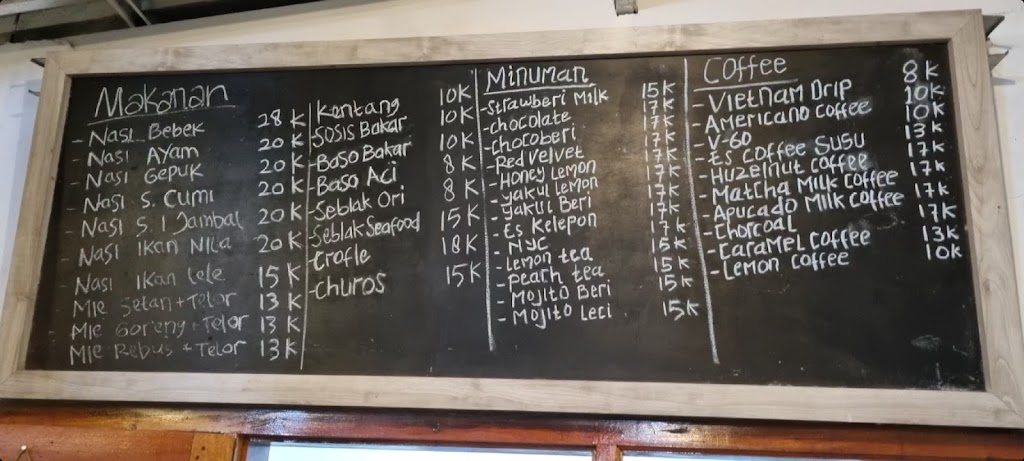 Makanan
- Nasi Bebek 28K
- Nasi Ayam 20K
- Nasi Gepuk 20K
- Nasi S. Cumi 20K
- Nasi S. I Jambal 20K
- Nasi Ikan Nila 20K
- Nasi Ikan lele 15K
Mie Setan + Telor 13K
Mie Goreng + Telor 13K
Mie Rebus + Telor 13K
- Kentang 10K
- SOSIS BaKar 10K
- Baso Bakar 10K
- Baso Aci 8K
- Seblak Ori 8K
- Seblak Seafood 15K
- Crofle 18K
- Churos 15K
Minuman
- Strawberi Milk 15K
- chocolate 17K
- chocoberi 17K
- Redvelvet 17K
- Honey Lemon 17K
- yakul Lemon 17K
- yakul Beri 17K
- Es Kelepon 17K
- NYC 17K
- Lemon tea 15K
- peach tea 15K
- Mojito Beri 15K
- Mojito Leci 15K
Coffee
- Vietnam Drip 8K
- Americano coffee 10K
- V-60 10K
- Es coffee susu 13K
- Huzelnut coffee 17K
- Matcha Milk coffee 17K
- Apucado Milk coffee 17K
- Chorcoal 17K
- CaraMel coffee 13K
- Lemon coffee 10K